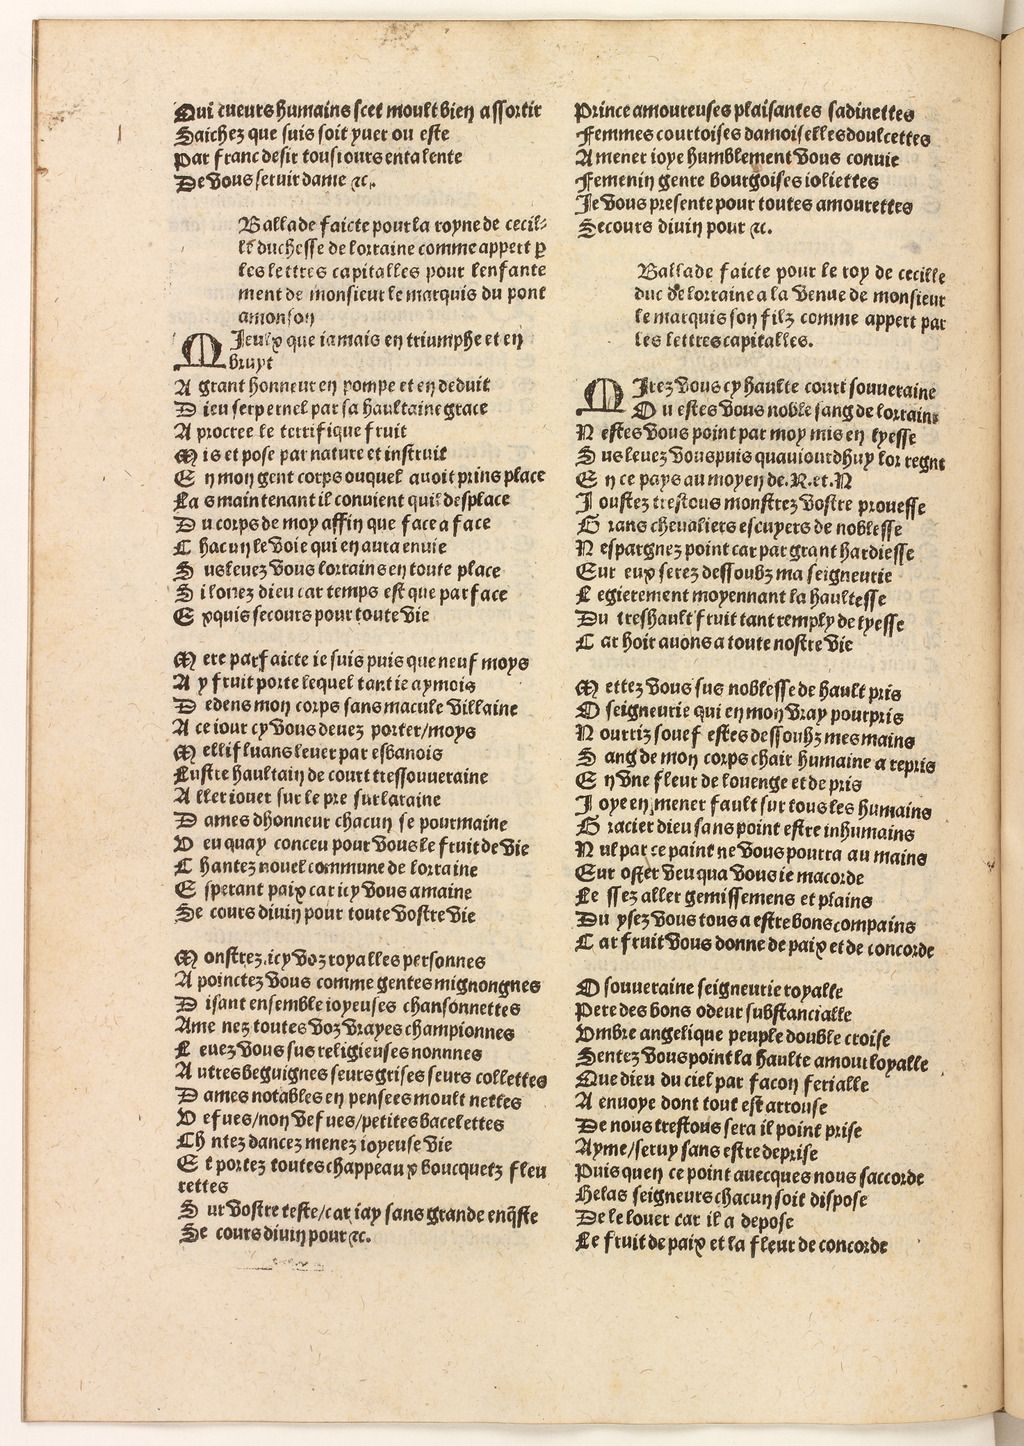 Qui cueurs humains scet moult bien assortir
Saichez que suis soit yuer ou este
Par franc desir tousiours entalente
De vous seruir dame ⁊c.
Ballade faicte pour la royne de cecil⸗
le duchesse de lorraine comme appert ꝑ
les lettres capitalles pour lenfante
ment de monsieur le marquis du pont
amonson
MIeulx que iamais en triumphe et en
bruyt
A grant honneur en pompe et en deduit
D ieu serpernel par sa haultaine grace
A procree le terrifique fruit
M is et pose par nature et instruit
E n mon gent corps ouquel auoit prins place
La s maintenant il conuient quil desplace
D u corps de moy affin que face a face
C hacun le voie qui en aura enuie
S us leuez vous lorrains en toute place
S i louez dieu car temps est que par face
E xquis secours pour toute vie
M ere parfaicte ie suis puis que neuf moys
A y fruit porte lequel tant ie aymois
D edens mon corps sans macule villaine
A ce iour cy vous deuez porter/moys
M ellifluans leuer par esbanois
Lustre haultain de court tressouueraine
A ller iouer sur le pre sur laraine
D ames dhonneur chacun se pourmaine
V eu quay conceu pour vous le fruit de vie
C hantez nouel commune de lorraine
E sperant paix car icy vous amaine
Se cours diuin pour toute vostre vie
M onstrez icy voz royalles personnes
A poinctez vous comme gentes mignongnes
D isant ensemble ioyeuses chansonnettes
Ame nez toutes voz vrayes championnes
L euez vous sus religieuses nonnnes
A utres beguignes seurs grises seurs collettes
D ames notables en pensees moult nettes
V efues/non vefues/petites bacelettes
Ch ntez dancez menez ioyeuse vie
E t portez toutes chappeaux boucquetz fleu
rettes
S ur vostre teste/car iay sans grande enq̃ste
Se cours diuin pour ⁊c.
Prince amoureuses plaisantes sadinettes
Femmes courtoises damoiselles doulcettes
A mener ioye humblement vous conuie
Femenin genre bourgoises ioliettes
Je vous presente pour toutes amourettes
Secours diuin pour ⁊c.
Ballade faicte pour le roy de cecille
duc de lorraine a la venue de monsieur
le marquis son filz comme appert par
les lettres capitalles.
MIrez vous cy haulte court souueraine
O u estes vous noble sang de lorraine
N estes vous point par moy mis en lyesse
S us leuez vous puis quauiourdhuy lor regne
E n ce pays au moyen de.R.et.N
J oustez trestous monstrez vostre prouesse
G rans cheualiers escuyers de noblesse
N espargnez point car par grant hardiesse
Eur eux serez dessoubz ma seigneurie
L egierement moyennant la haultesse
Du treshault fruit tant remply de lyesse
C ar hoir auons a toute nostre vie
M ettez vous sus noblesse de hault pris
O seigneurie qui en mon vray pourpris
N ourriz souef estes dessoubz mes mains
S ang de mon corps chair humaine a repris
E n vne fleur de louenge et de pris
J oye en mener fault sur tous les humains
G racier dieu sans point estre inhumains
N ul par ce paint ne vous pourra au mains
Eur oster veu qua vous ie macorde
Le ssez aller gemissemens et plains
Du ysez vous tous a estre bons compains
C ar fruit vous donne de paix et de concorde
O souueraine seigneurie royalle
Pere des bons odeur substancialle
Vmbre angelique peuple double croise
Sentez vous point la haulte amour loyalle
Que dieu du ciel par facon ferialle
A enuoye dont tout est arrouse
De nous trestous sera il point prise
Ayme/seruy sans estre deprise
Puis quen ce point auecques nous saccorde
Helas seigneurs chacun soit dispose
De le louer car il a depose
Le fruit de paix et la fleur de concorde